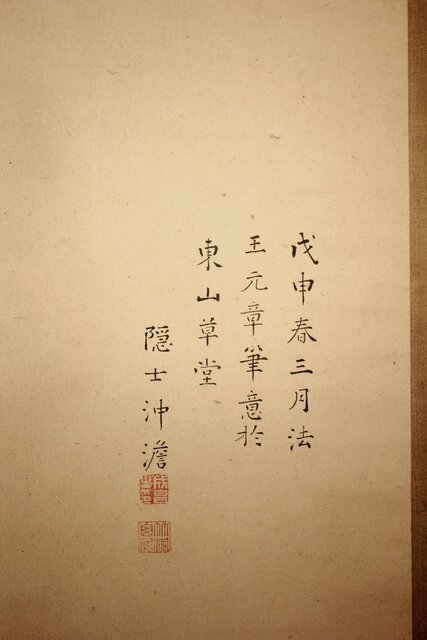 戊申春三月法
王元章筆意於
東山草堂
隠士沖澹